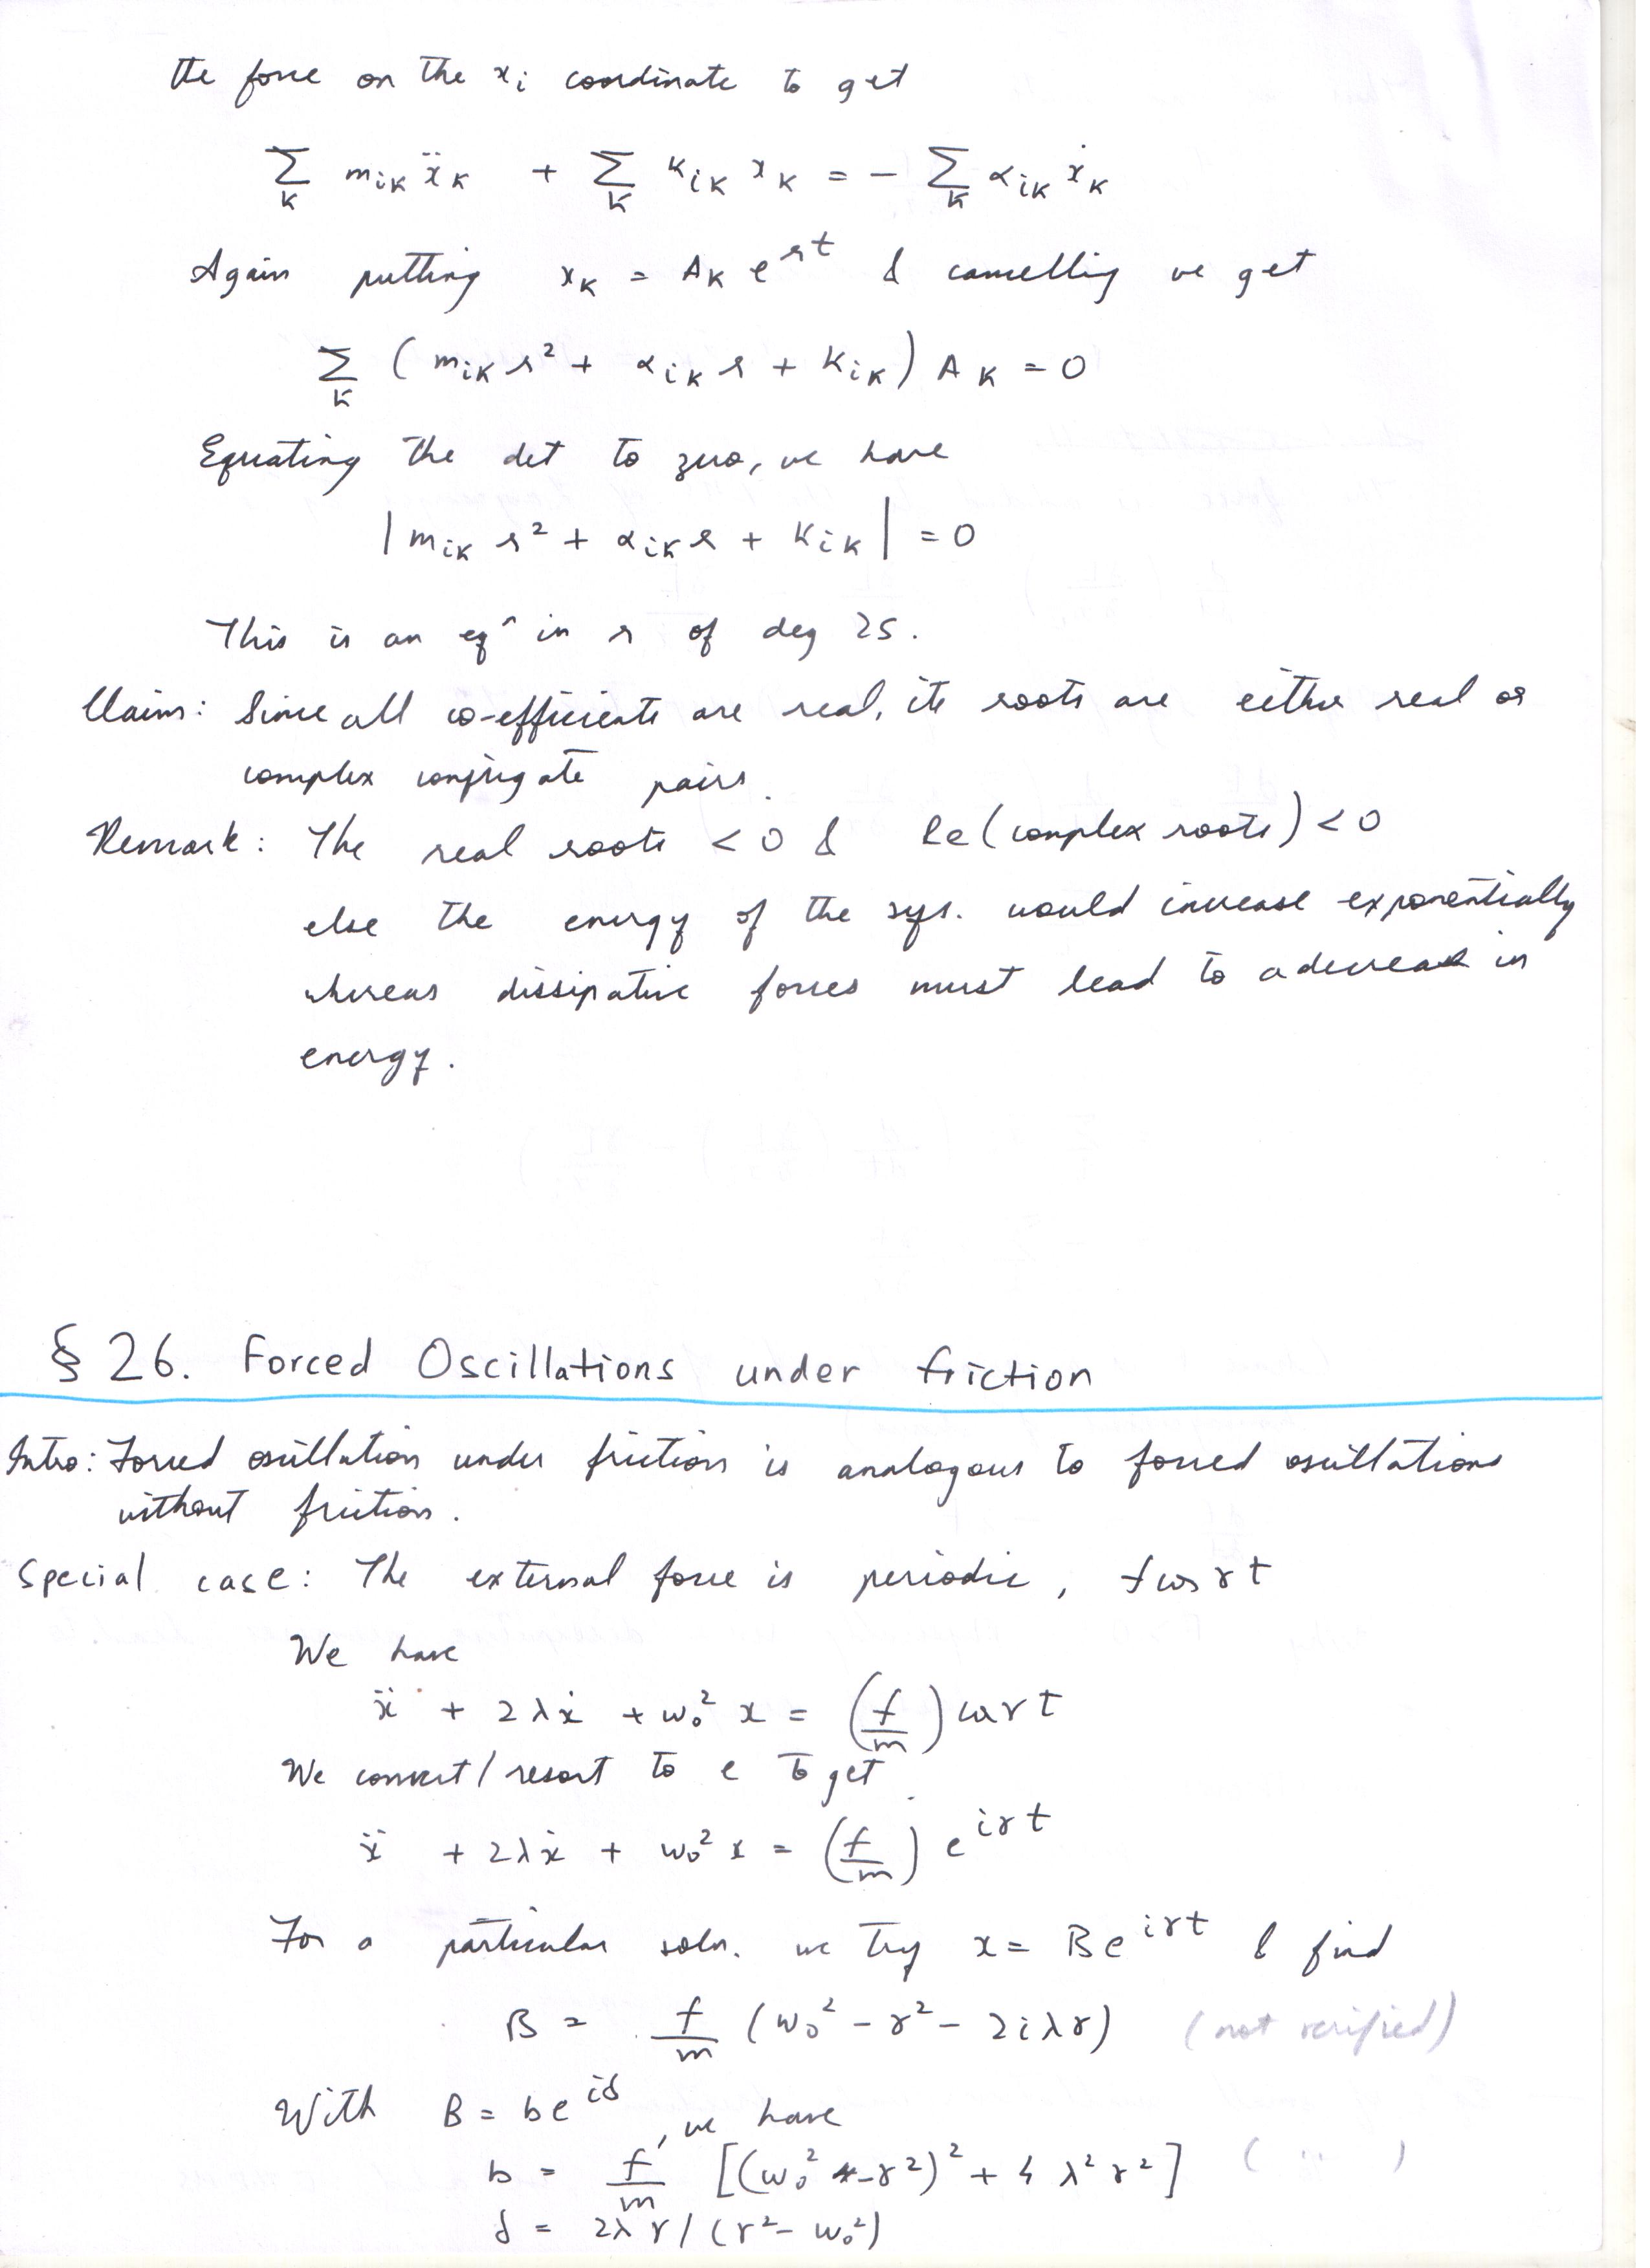 the force on the xᵢ coordinate to get
∑_k m_ik ẍ_k + ∑_k k_ik x_k = - ∑_k α_ik ẋ_k
Again putting x_k = A_k e^rt & cancelling we get
∑_k (m_ik r² + α_ik r + k_ik) A_k = 0
Equating the det to zero, we have
|m_ik r² + α_ik r + k_ik| = 0
This is an eqⁿ in r of deg 2s.
Claim: Since all co-efficients are real, its roots are either real or
complex conjugate pairs.
Remark: The real roots < 0 & Re(complex roots) < 0
else the energy of the sys. would increase exponentially
whereas dissipative forces must lead to a decrease in
energy.
§ 26. Forced Oscillations under friction
Intro: Forced oscillation under friction is analogous to forced oscillations
without friction.
Special case: The external force is periodic, f cos γt
We have
ẍ + 2λẋ + ω₀² x = (f/m) cos γt
We convert/resort to e to get
ẍ + 2λẋ + ω₀² x = (f/m) e^iγt
For a particular soln. we try x = Be^iγt & find
B = f/m (ω₀² - γ² - 2iλγ) (not verified)
With B = be^iδ, we have
b = f/m [(ω₀² - γ²)² + 4 λ² γ²] ( " )
δ = 2λγ/(γ² - ω₀²)